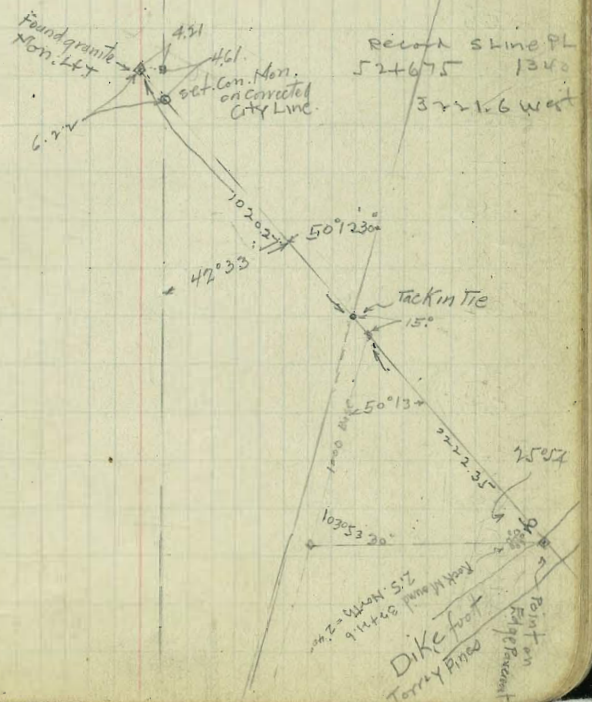 Found granite
Mon. Lty
4.21
4.61
set. Con. Mon.
on corrected
City Line.
6.22
Record S Line PL
52+675 1340
3221.6 West
1020.2
50°12'30"
42°33'
Tack in Tie
15.
50°13
2222.35
25°57
103°53 30"
Rock Mound
2.5. North = 2'40"
Dike foot
Torrey Pines
Point on
Edge Pavement